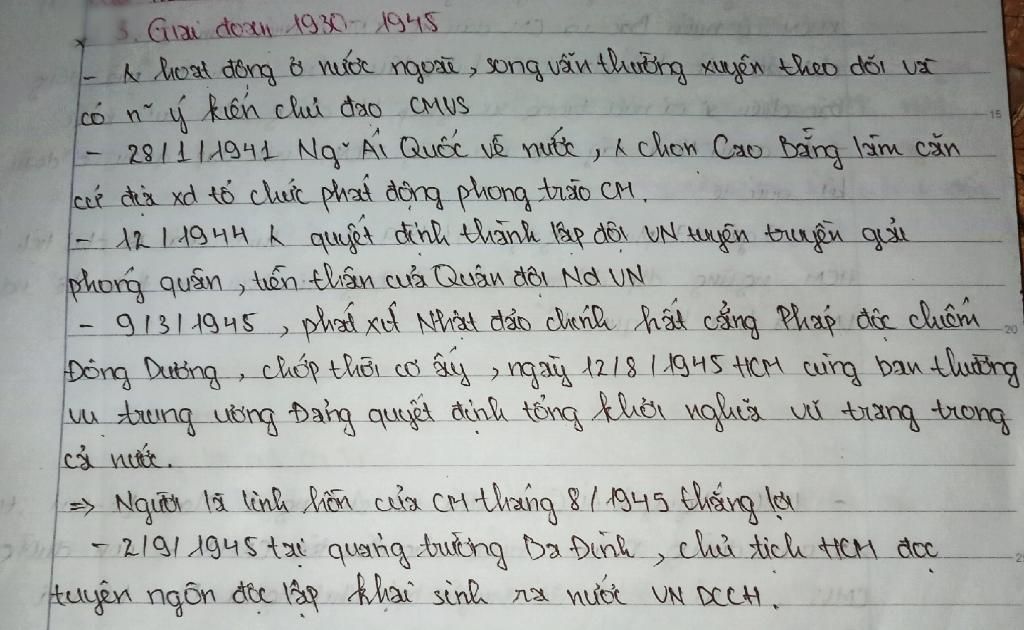 3. Giai đoạn 1930 - 1945
- λ hoạt động ở nước ngoài, song vẫn thường xuyên theo dõi và
có n~ ý kiến chỉ đạo CMVS
- 28/1/1941 Ng~ Ái Quốc về nước, λ chọn Cao Bằng làm căn
cứ địa xd tổ chức phát động phong trào CM.
- 12/1944 λ quyết định thành lập đội VN tuyên truyền giải
phóng quân, tiền thân của Quân đội Nd VN
- 9/3/1945, phát xít Nhật đảo chính hất cẳng Pháp độc chiếm
Đông Dương, chớp thời cơ ấy, ngày 12/8/1945 HCM cùng ban thường
vụ trung ương Đảng quyết định tổng khởi nghĩa vũ trang trong
cả nước.
=> Người là linh hồn của CM tháng 8/1945 thắng lợi
- 2/9/1945 tại quảng trường Ba Đình, chủ tịch HCM đọc
tuyên ngôn độc lập khai sinh ra nước VN DCCH.
15
20